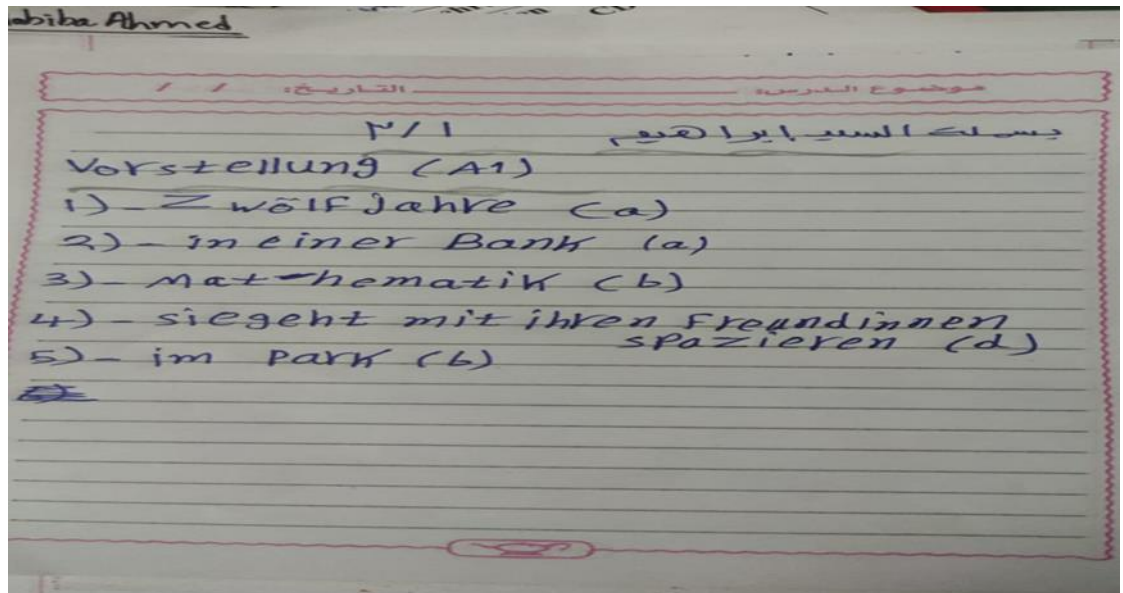 abiba Ahmed
موضوع الدرس: التاريخ: / /
بسملة السيد ابراهيم ٣/١
Vorstellung (A1)
1)- Zwölf Jahre (a)
2)- in einer Bank (a)
3)- Mathematik (b)
4)- sie geht mit ihren Freundinnen
spazieren (d)
5)- im Park (b)